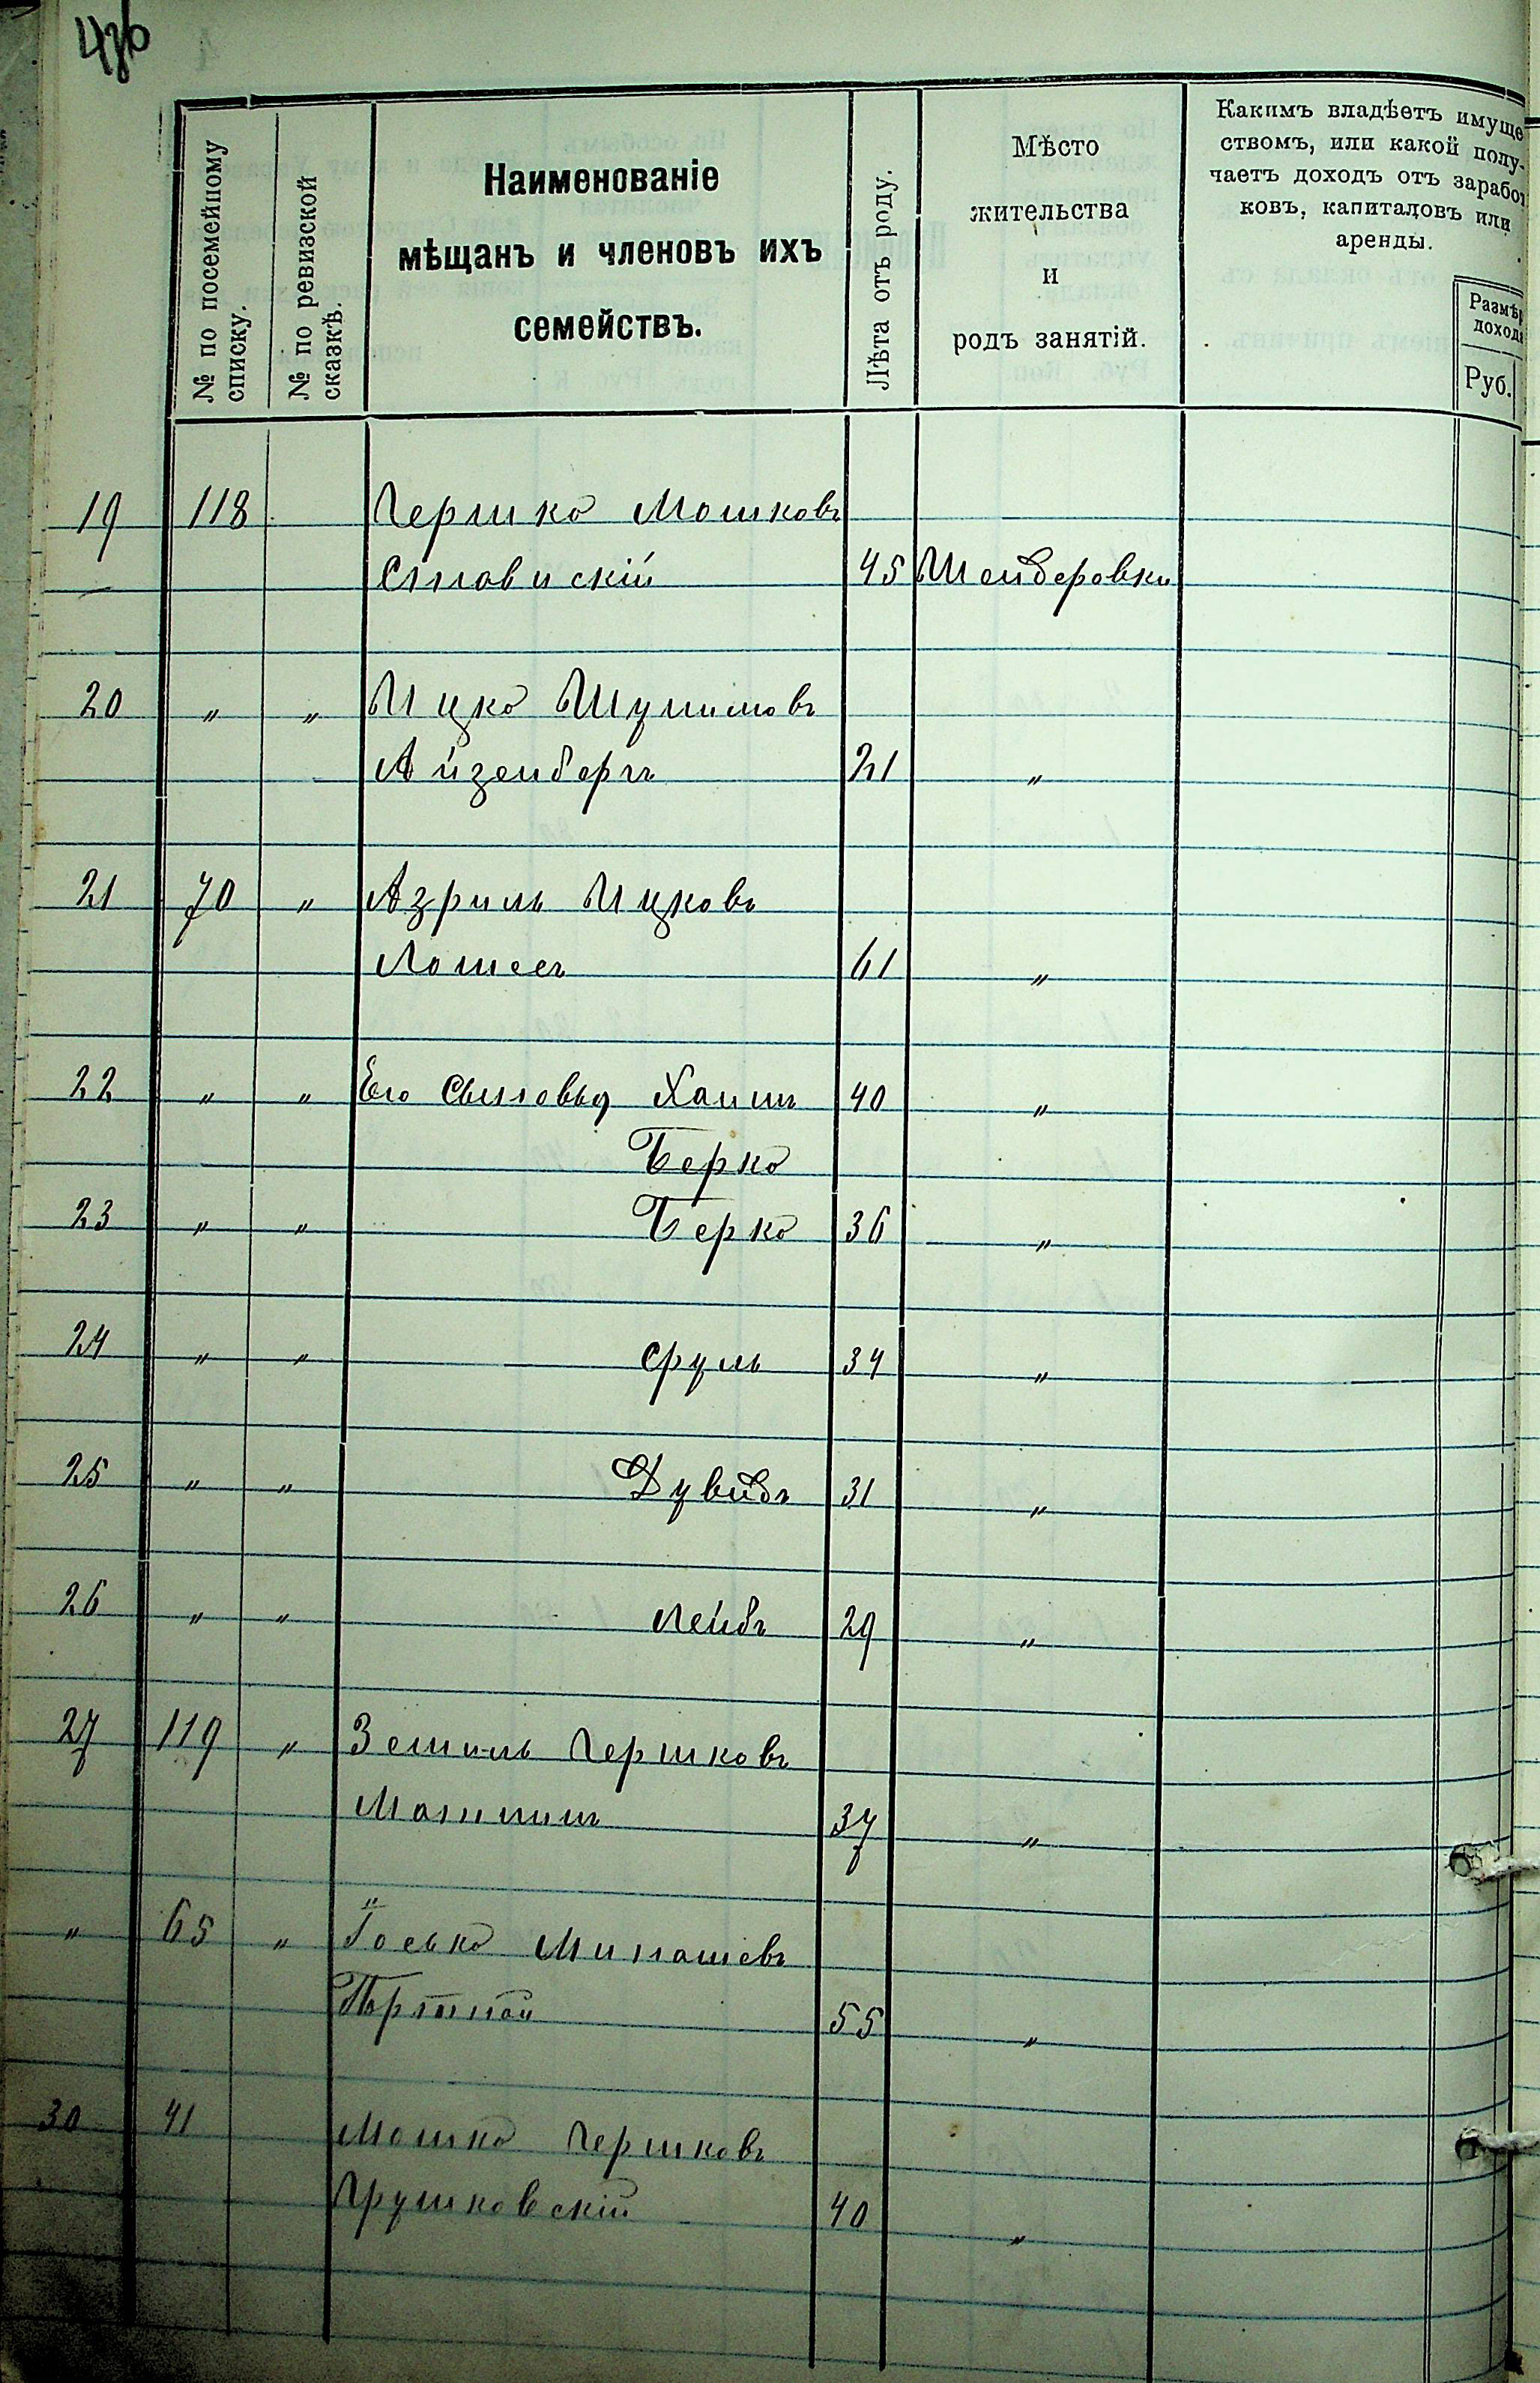 № по посемейному списку.
№ по ревизской сказкѣ.
Наименованіе
мѣщанъ и членовъ ихъ
семействъ.
Лѣта отъ роду.
Мѣсто
жительства
и
родъ занятій.
Какимъ владѣетъ имуще
ствомъ, или какой полу-
чаетъ доходъ отъ заработ
ковъ, капиталовъ или
аренды.
Размѣр
дохода
Руб.
19 118 Гершко Мошковъ
45 Шендеровки
20 " " Ицко
Айзенбергъ 21 "
21 70 " Азриль Ицковъ
61 "
22 " " Его Сыновья Хаимъ 40 "
Берко
23 " " Берко 36 "
24 " " Сруль 34 "
25 " " Дувидъ 31 "
26 " " Лейбъ 29 "
27 119 " Гершковъ
37 "
" 65 " Іосько
55 "
30 41 Мошко Гершковъ
Грушковскій 40 "